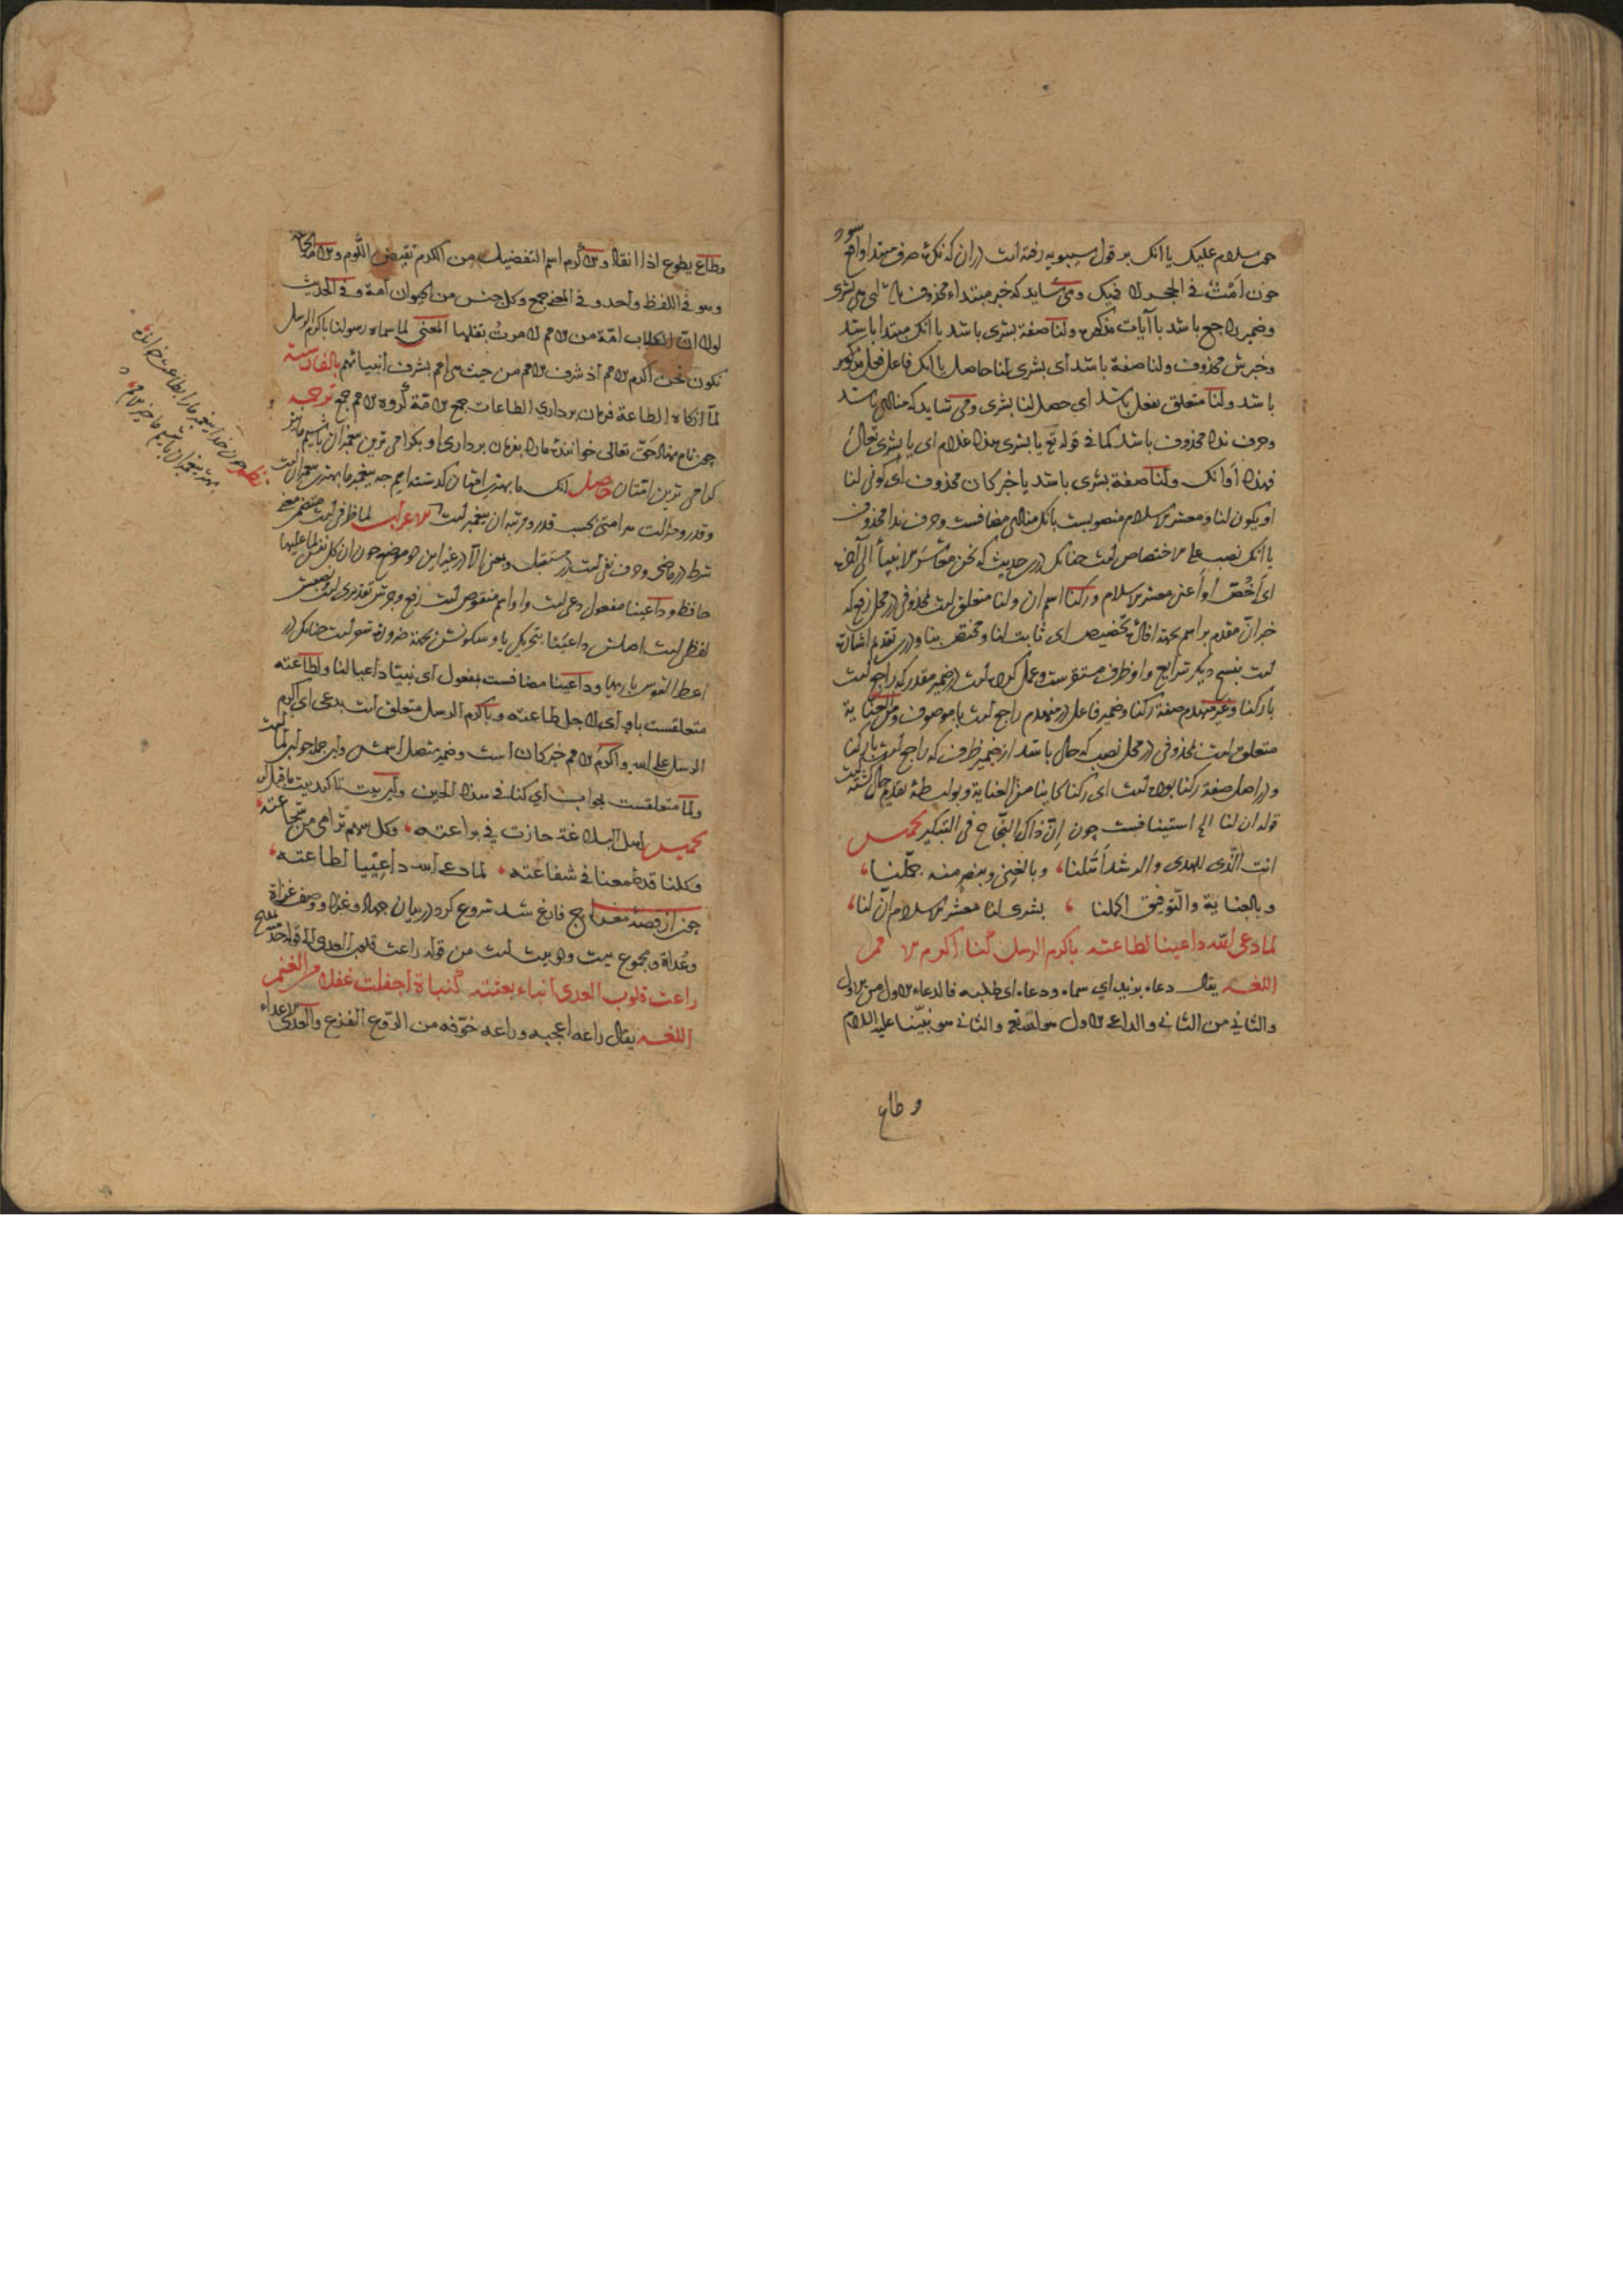 چون سلام علیک یا انک بر قول سیبویه رفته است در آن که نکره صرف مبتدا واقع شود
چون امت فی الحجر لا فیک و می شاید که خبر مبتداء محذوف باشد ای هی بشری
و ضمیر راجع باشد با آیات مذکوره و لنا صفة بشری باشد یا انک مبتدا باشد
و خبرش محذوف و لنا صفة باشد ای بشری لنا حاصل یا انک فاعل فعل مذکور
باشد و لنا متعلق بفعل باشد ای حصل لنا بشری و می شاید که منادی باشد
و حرف ندا محذوف باشد کما فی قوله تع یا بشری هذا غلام ای یا بشری تعالی
فهذا اوانک و لنا صفة بشری باشد یا خبر کان محذوف ای کونی لنا
او یکون لنا و معشر الاسلام منصوبست بانک منادی مضافست و حرف ندا محذوف
یا انک نصب علی الاختصاص است چنانک در حدیث که نحن معاشر الانبیاء الی آخره
ای اخص او اعنی معشر الاسلام و رکنا اسم ان و لنا متعلق است بمحذوفی در محل رفع که
خبر ان مقدم بر اسم بجهة افادة تخصیص ای ثابت لنا و مختص بنا و در تقدیم اشارت
است بنسخ دیگر شرایع و او ظرف مستقرست و عمل کرده است در ضمیر مقدر که راجع است
با رکنا و غیر منهدم صفة رکنا و ضمیر فاعل در منهدم راجع است با موصوف و من العنایة
متعلق است بمحذوفی در محل نصب که حال باشد از ضمیر ظرف که راجع است با رکنا
و در اصل صفة رکنا بوده است ای رکنا کاینا من العنایة و بواسطة تقدیم حال گشته است
قوله ان لنا الی استینافست چون ان ذاک النجاح فی التبکیر تخمیس
انت الذی للهدی والرشد اتلنا، وبالغنی وبنصر منه جملنا،
وبالعنایة والتوفیق اکملنا ، بشری لنا معشر الاسلام ان لنا،
لما دعی الله داعینا لطاعته باکرم الرسل کنا اکرم الامم
اللغة یقال دعاه بزید ای سماه ودعاه ای طلبه فالدعاء الاول من الاول
والثانی من الثانی والداعی الاول هو الله تع والثانی هو نبینا علیه السلام
و طاع
وطاع یطوع اذا انقاد والاکرم اسم التفضیل من الکرم نقیض اللوم والامة الجماعة
وهو فی اللفظ واحد وفی المعنی جمع وکل جنس من الحیوان امة وفی الحدیث
لولا ان الکلاب امة من الامم لامرت بقتلها المعنی لما سماه رسولنا باکرم الرسل
نکون نحن اکرم الامم اذ شرف الامم من حیث هی امم بشرف انبیائهم بالفارسیة
لما آنگاه الطاعة فرمان برداری الطاعات جمع الامة گروه الامم جمع ترجمه
چون نام نهاد حق تعالی خوانندۀ ما را بفرمان برداری او بگرامی ترین پیغمبران باشیم ما نیز
گرامی ترین امتان حاصل انک ما بهترین امتان گذشته ایم چه پیغمبر ما بهترین پیغمبرانست
و قدر و منزلت هر امتی بحسب قدر و مرتبه آن پیغمبر است الاعراب لما ظرفی است متضمن معنی
شرط در ماضی و حرف نفی است در مستقبل و بمعنی الا در غیر این دو موضع چون ان کل نفس لما علیها
حافظ و داعینا مفعول دعی است و او اسم منقوص است رفع و جرش تقدیری است و نصبش
لفظی است اصلش داعینا بتحریک یا و سکونش بجهة ضرورة شعر است چنانک در
اعط القوس باریها و داعینا مضافست بمفعول ای نبیّنا داعیا لنا و لطاعته
متعلقست باو ای لاجل طاعته و باکرم الرسل متعلق است بدعی ای اکرم
الرسل علی الله و اکرم الامم خبر کان است و ضمیر متصل اسمش و این جمله جواب لما است
و لما متعلقست بجواب ای کنا فی هذا الحین و این بیت تاکید بیت ماقبل است
تخمیس اهل البلاغة حازت فی براعته، وکل سهم ترامی من شجاعته،
وکلنا قد طمعنا فی شفاعته، لما دعی الله داعینا لطاعته،
چون از قصة معراج فارغ شد شروع کرد در بیان جهاد و غزا و وصف غزاة
و عداة و مجموع بیست و دو بیت است من قوله راعت قلوب العدی الی قوله احد
راعت قلوب العدی انباء بعثته کنباة اجفلت غفلا من الغنم
اللغة یقال راعه اعجبه وراعه خوفه من الروع الفزع والعدی الاعداء
نظم چون خدا پیغمبر ما را بطاعت خوانده
بهترین پیغمبران باشیم ما خیر الامم